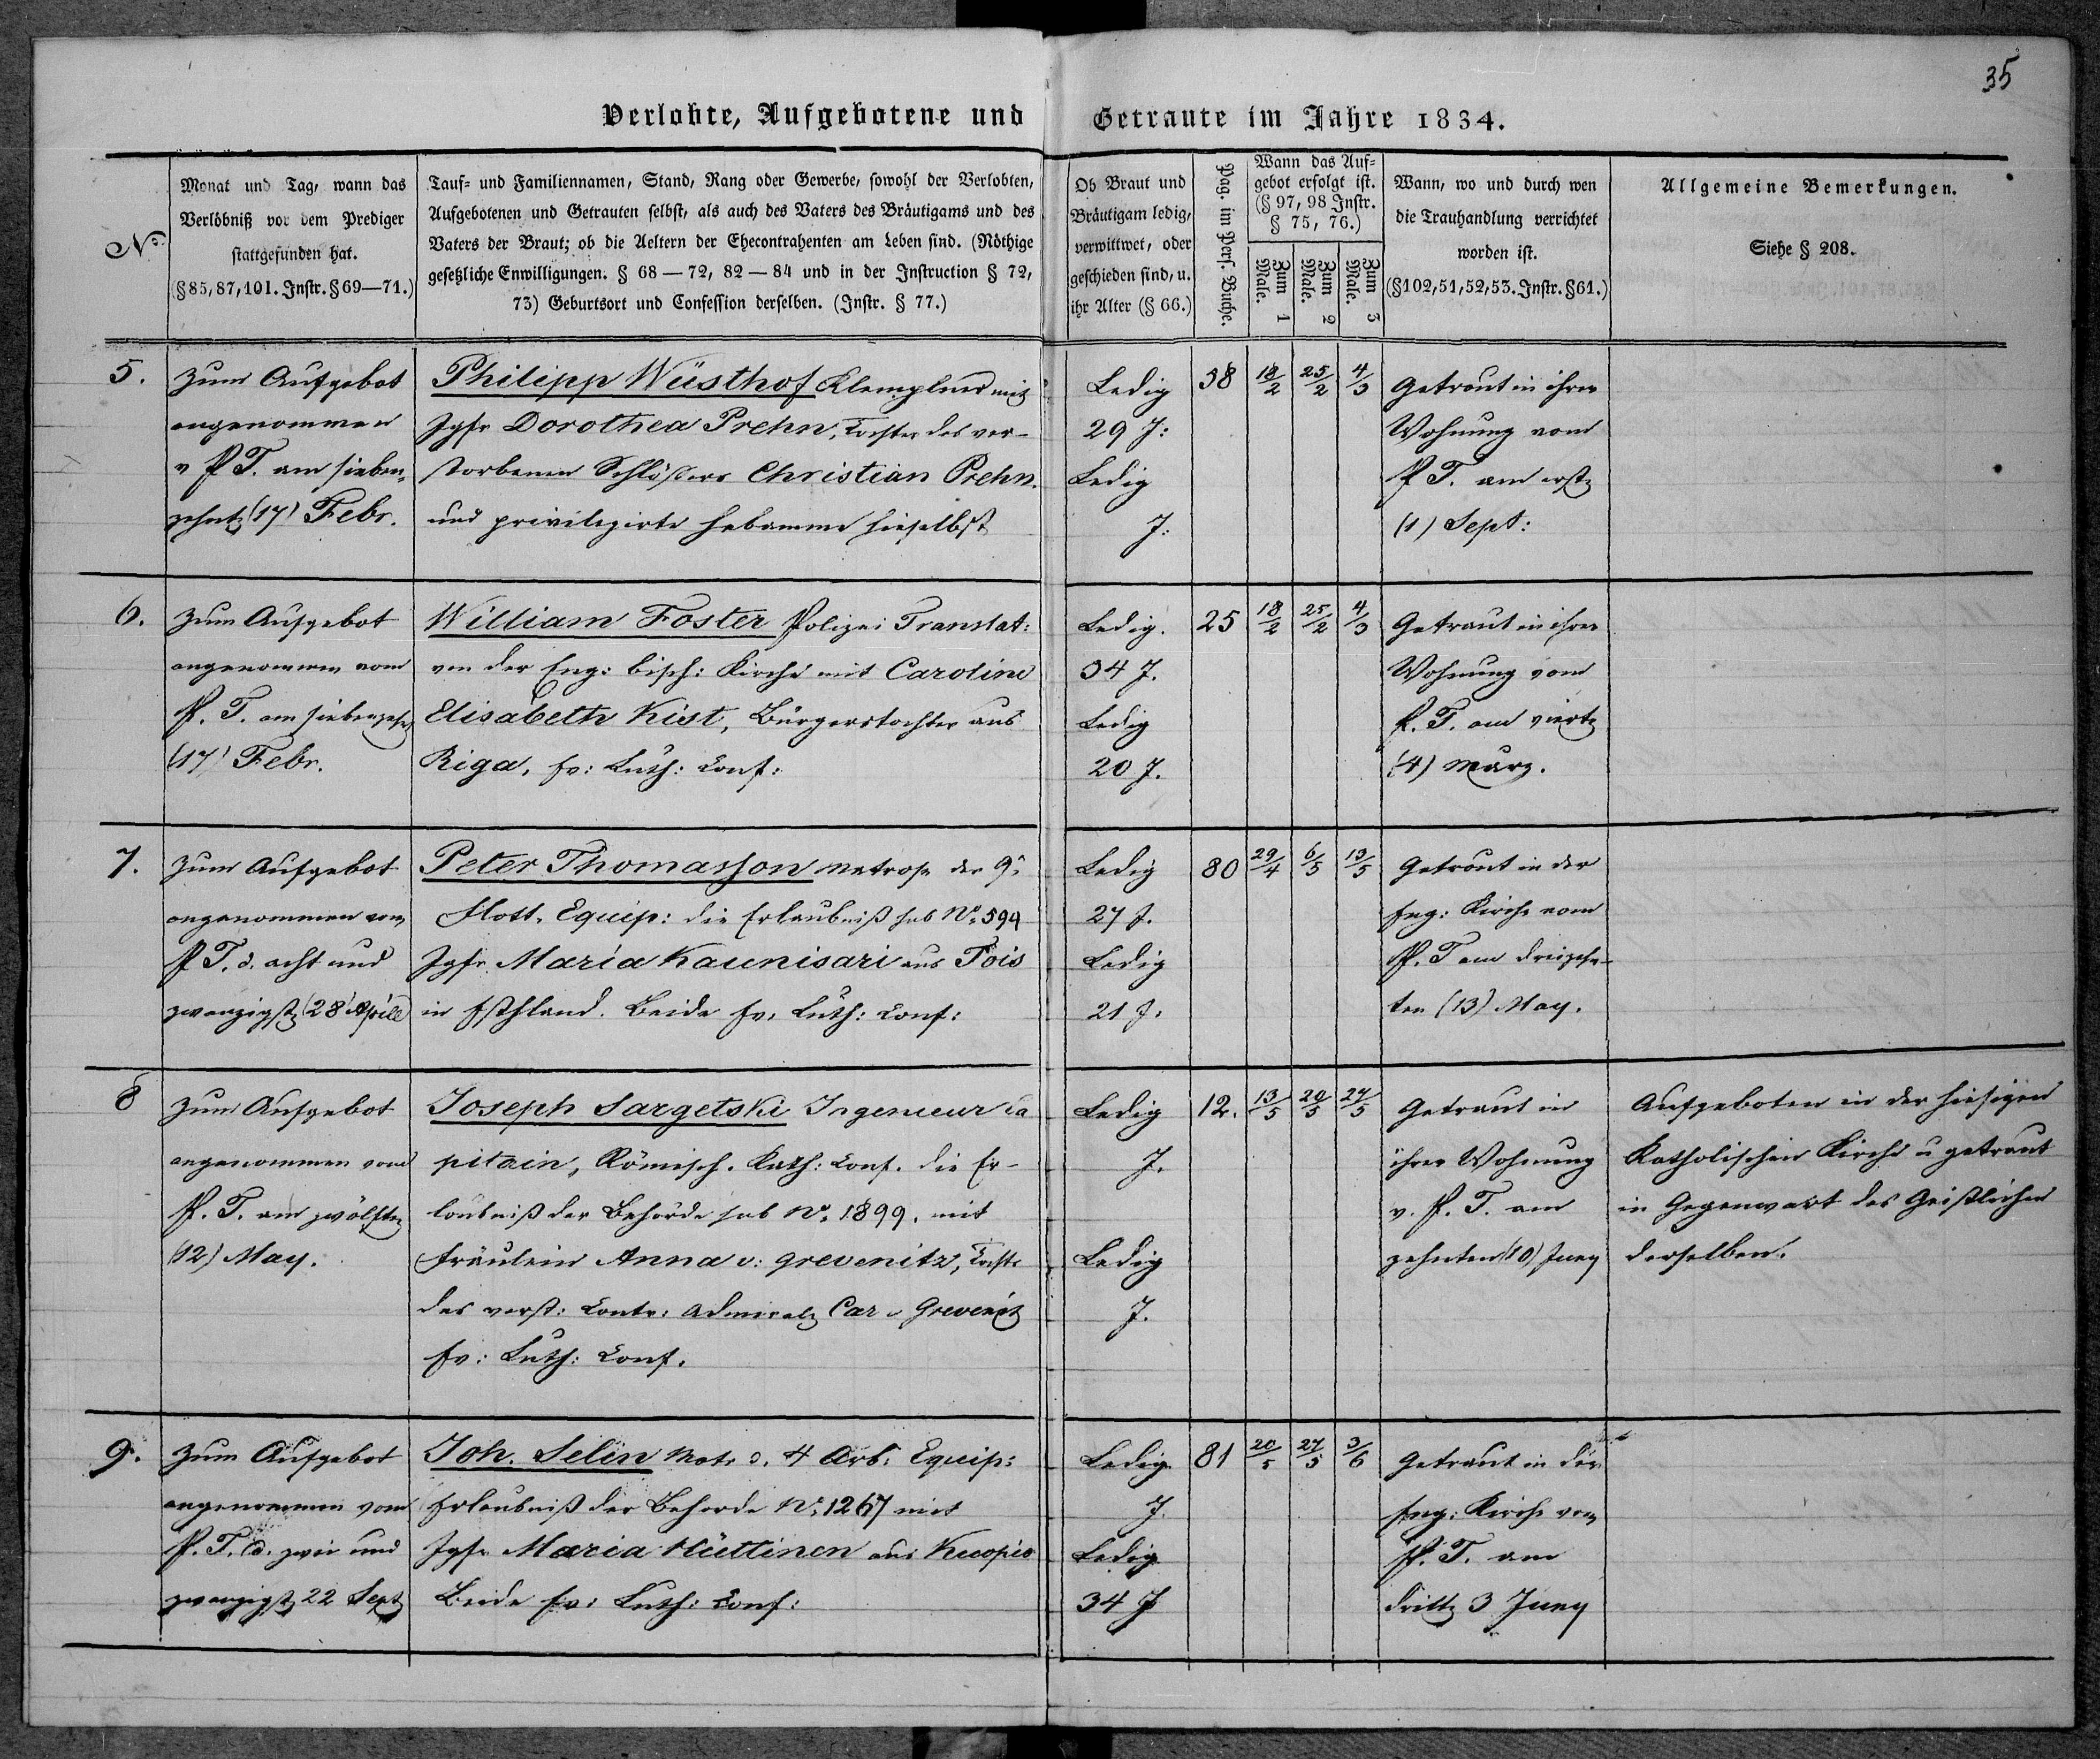 35
Verlobte, Aufgebotene und Getraute im Jahre 1834.
No.
Monat und Tag, wann das
Verlöbniß vor dem Prediger
stattgefunden hat.
(§85, 87, 101. Instr. §69—71.)
Tauf- und Familiennamen, Stand, Rang oder Gewerbe, sowohl der Verlobten,
Aufgebotenen und Getrauten selbst, als auch des Vaters des Bräutigams und des
Vaters der Braut; ob die Aeltern der Ehecontrahenten am Leben sind. (Nöthige
gesetzliche Enwilligungen. § 68—72, 82—84 und in der Instruction § 72,
73) Geburtsort und Confession derselben. (Instr. § 77.)
Ob Braut und
Bräutigam ledig,
verwittwet, oder
geschieden sind, u.
ihr Alter (§ 66.)
Pag. im Pers. Buche.
Wann das Auf-
gebot erfolgt ist.
(§ 97, 98 Instr.
§ 75, 76.)
Zum 1
Male.
Zum 2
Male.
Zum 3
Male.
Wann, wo und durch wen
die Trauhandlung verrichtet
worden ist.
(§102, 51, 52, 53. Instr. §61.)
Allgemeine Bemerkungen.
Siehe § 208.
5.
Zum Aufgebot
angenommen
v P. T. am sieben-
zehnt (17) Febr.
Philipp Wüsthof Klempner mit
Jgfr Dorothea Prehn, Tochter des ver-
storbenen Schlößers Christian Prehn.
und privilegirte Hebamme hieselbst
Ledig
29 J:
Ledig
J:
38
18/2 25/2 4/3
Getraut in ihrer
Wohnung vom
P. T. am erst
(1) Sept:
6.
Zum Aufgebot
angenommen vom
P. T. am siebenzeh
(17) Febr.
William Foster Polizei Translat:
von der Eng: bisch: Kirche mit Caroline
Elisabeth Kist, Bürgerstochter aus
Riga, Ev: Luth: Conf:
Ledig.
34 J.
Ledig
20 J.
25
18/2 25/2 4/3
Getraut in ihrer
Wohnung vom
P. T. am viert
(4) März.
7.
Zum Aufgebot
angenommen vom
P T. d. acht und
zwanzigst (28) Aprill
Peter Thomasson Matrose der 9.
Flott. Equip: die Erlaubniß sub No. 594
Jgfr. Maria Kaunisari aus Fois
in Esthland. Beide Ev. Luth: Conf:
Ledig
27 J.
Ledig
21 J.
80
29/4 6/5 13/5
Getraut in der
Eng: Kirche vom
P. T am dreizehn-
ten (13) May.
8
Zum Aufgebot
angenommen vom
P. T. am zwölften
(12) May.
Joseph Sargetski Ingenieur Ca
pitain, Römisch. Kath: Conf. die Er-
laubniß der Behörde sub No. 1899. mit
Fräulein Anna v: Grevenitz, Tocht
des verst: Contr: Admirals Car v Grevenitz
Ev: Luth: Conf.
Ledig
J.
Ledig
J.
12.
13/5 20/5 27/5
Getraut in
ihrer Wohnung
v. P. T. am
zehnten (10) Juny
Aufgeboten in der hiesigen
Katholischen Kirche u getraut
in Gegenwart des Geistlichen
derselben.
9.
Zum Aufgebot
angenommen vom
P. T. d. zwei und
zwanzigst 22 Sept
Joh. Selin Matr d. 4 Arb: Equip:
Erlaubniß der Behörde No. 1267 mit
Jgfr Maria Hüttinen aus Kuopio
Beide Ev: Luth: Conf:
Ledig
J.
Ledig
34 J
81
20/5 27/5 3/6
Getraut in der
Eng: Kirche vom
P. T. am
dritt 3 Juny